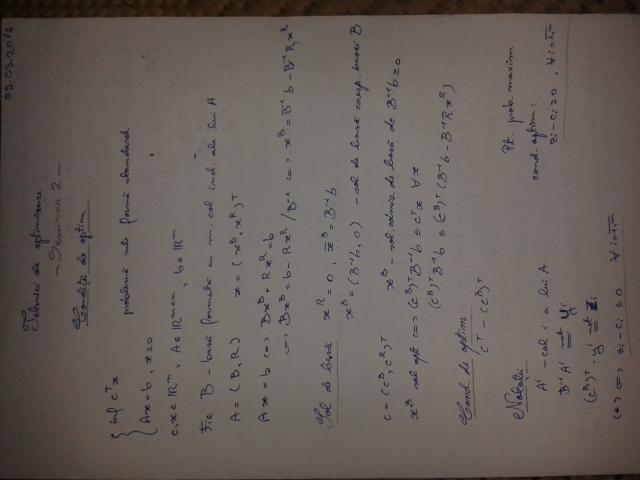 09.03.2016
Tehnici de optimizare
- Seminar 2 -
Condiții de optim
{ inf cᵀx
problemă sub formă standard
Ax = b, x ≥ 0
c, x ∈ ℝⁿ, A ∈ ℝᵐˣⁿ, b ∈ ℝᵐ
Fie B - bază formată cu m. col. ind. ale lui A
A = (B, R) x = (xᴮ, xᴿ)ᵀ
Ax = b ⇔ Bxᴮ + Rxᴿ = b
⇔ Bxᴮ = b - Rxᴿ / B⁻¹ ⇔ xᴮ = B⁻¹b - B⁻¹Rxᴿ
Sol de bază xᴿ = 0, x̄ᴮ = B⁻¹b
xᴮ = (B⁻¹b, 0) - sol de bază coresp. bazei B
c = (cᴮ, cᴿ)ᵀ xᴮ - sol. admis. de bază dc B⁻¹b ≥ 0
xᴮ sol opt ⇔ (cᴮ)ᵀB⁻¹b ≤ cᵀx ∀x
(cᴮ)ᵀB⁻¹b ≤ (cᴮ)ᵀ(B⁻¹b - B⁻¹Rxᴿ)
Cond. de optim
cᵀ - (cᴮ)ᵀ
Notații
Aⁱ - col i a lui A
B⁻¹Aⁱ not= yⁱ
(cᴮ)ᵀ · yⁱ not= zᵢ
(*) ⇔ zᵢ - cᵢ ≤ 0 ∀ i = 1,n
Pt. prob. maxim
cond. optim:
zᵢ - cᵢ ≥ 0, ∀ i = 1,n